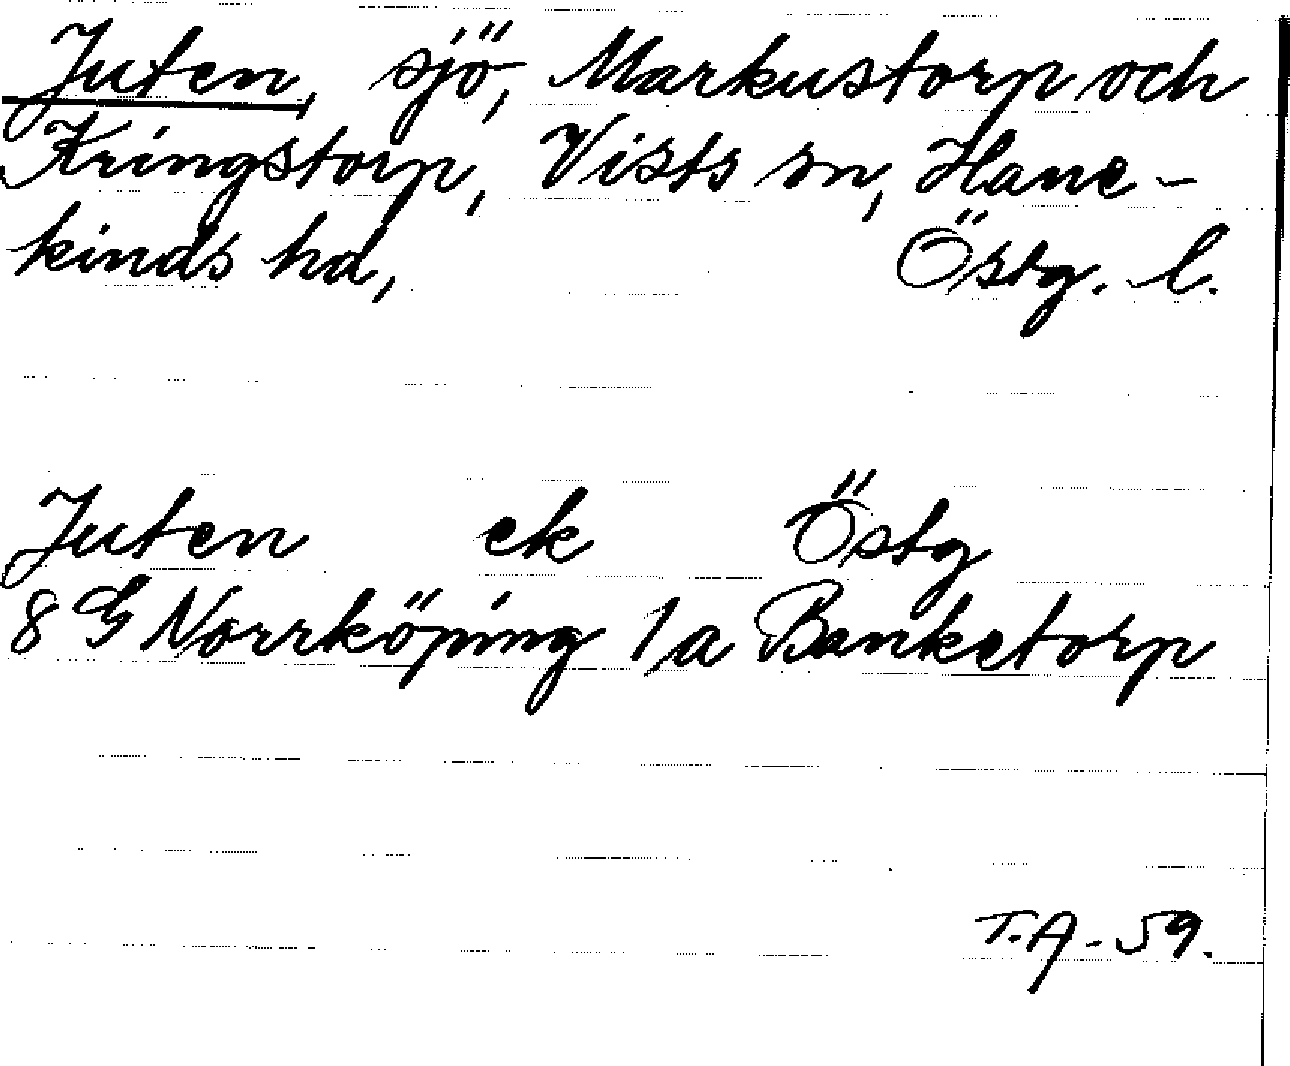 Juten, sjö, Markustorp och
Kringstorp, Vists sn, Hane-
kinds hd, Östg. l.
Juten ek Östg
8 G Norrköping 1/a Banketorp
T.A-59.